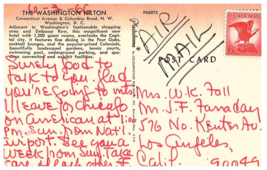 THE WASHINGTON HILTON
Connecticut Avenue & Columbia Road, N. W.
Washington, D. C.
Adjacent to Washington's fashionable shopping
area and Embassy Row, this magnificent new
hotel with 1,200 guest rooms, overlooks the Capital
city. It features fine dining in the
cocktail lounges, and the popular-priced
beautifully landscaped gardens, tennis courts,
swimming pool, underground parking, and
convention and exhibit facilities.
P66073
AIR
MAIL
POST CARD
Sure good to
talk to you. Glad
you're going to
I leave for Chicago
on American at 1:00
P.M. Sun. from Nat'l
airport. See you a
week from Sun. Take
care of each other
Mrs. W. K. Fall
Mrs. J. F. Faraday
576 No. Kenter Av.
Los Angeles
Calif. 90049